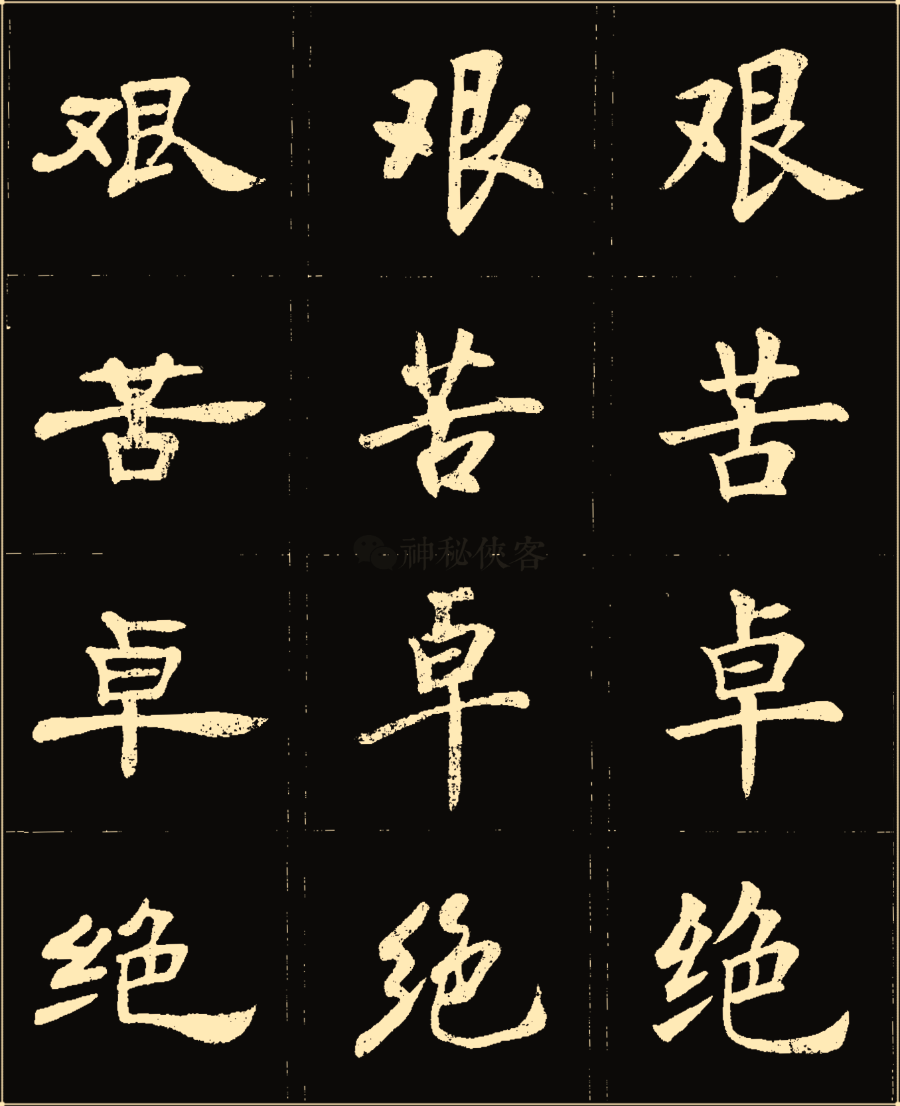 艰 艰 艰
苦 苦 苦
卓 卓 卓
绝 绝 绝
神秘侠客